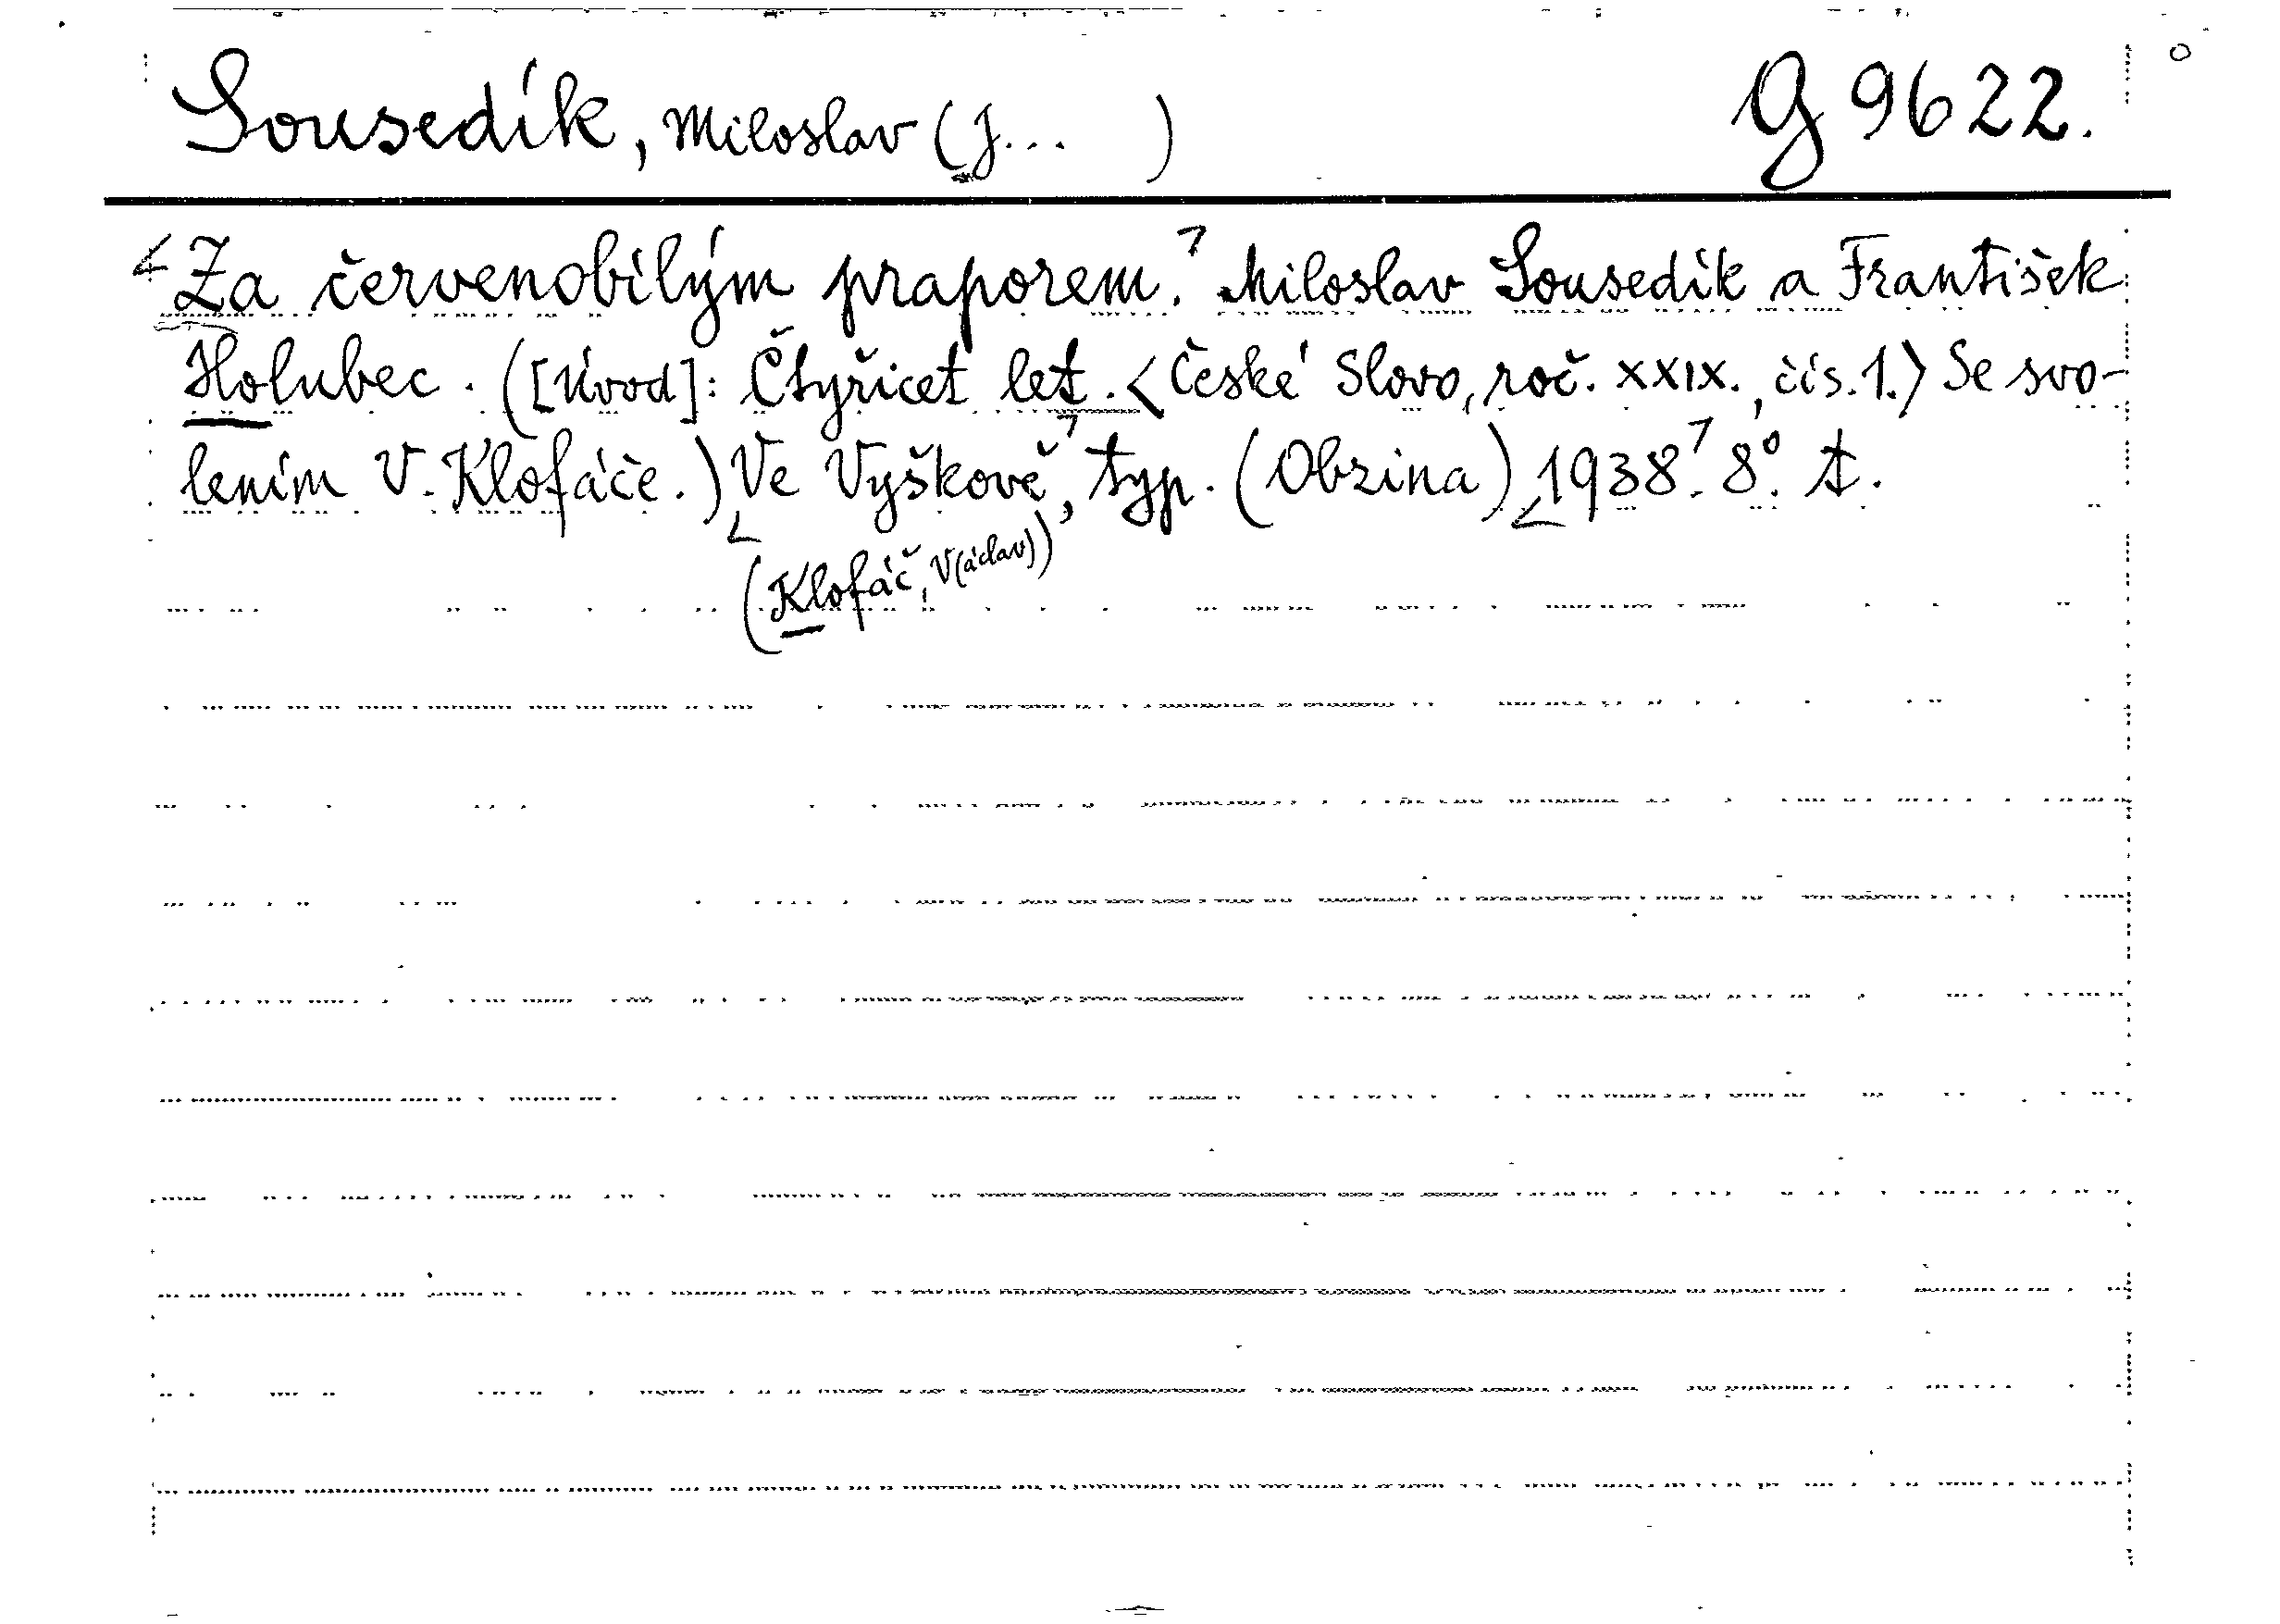 Sousedík, Miloslav (J... ) G 9622.
Za červenobílým praporem. Miloslav Sousedík a František
Holubec. ([Úvod]: Čtyřicet let. <České Slovo, roč. XXIX., čís. 1.> Se svo-
lením V. Klofáče.) Ve Vyškově, typ. (Obzina) 1938. 8°. A.
(Klofáč, V(áclav))